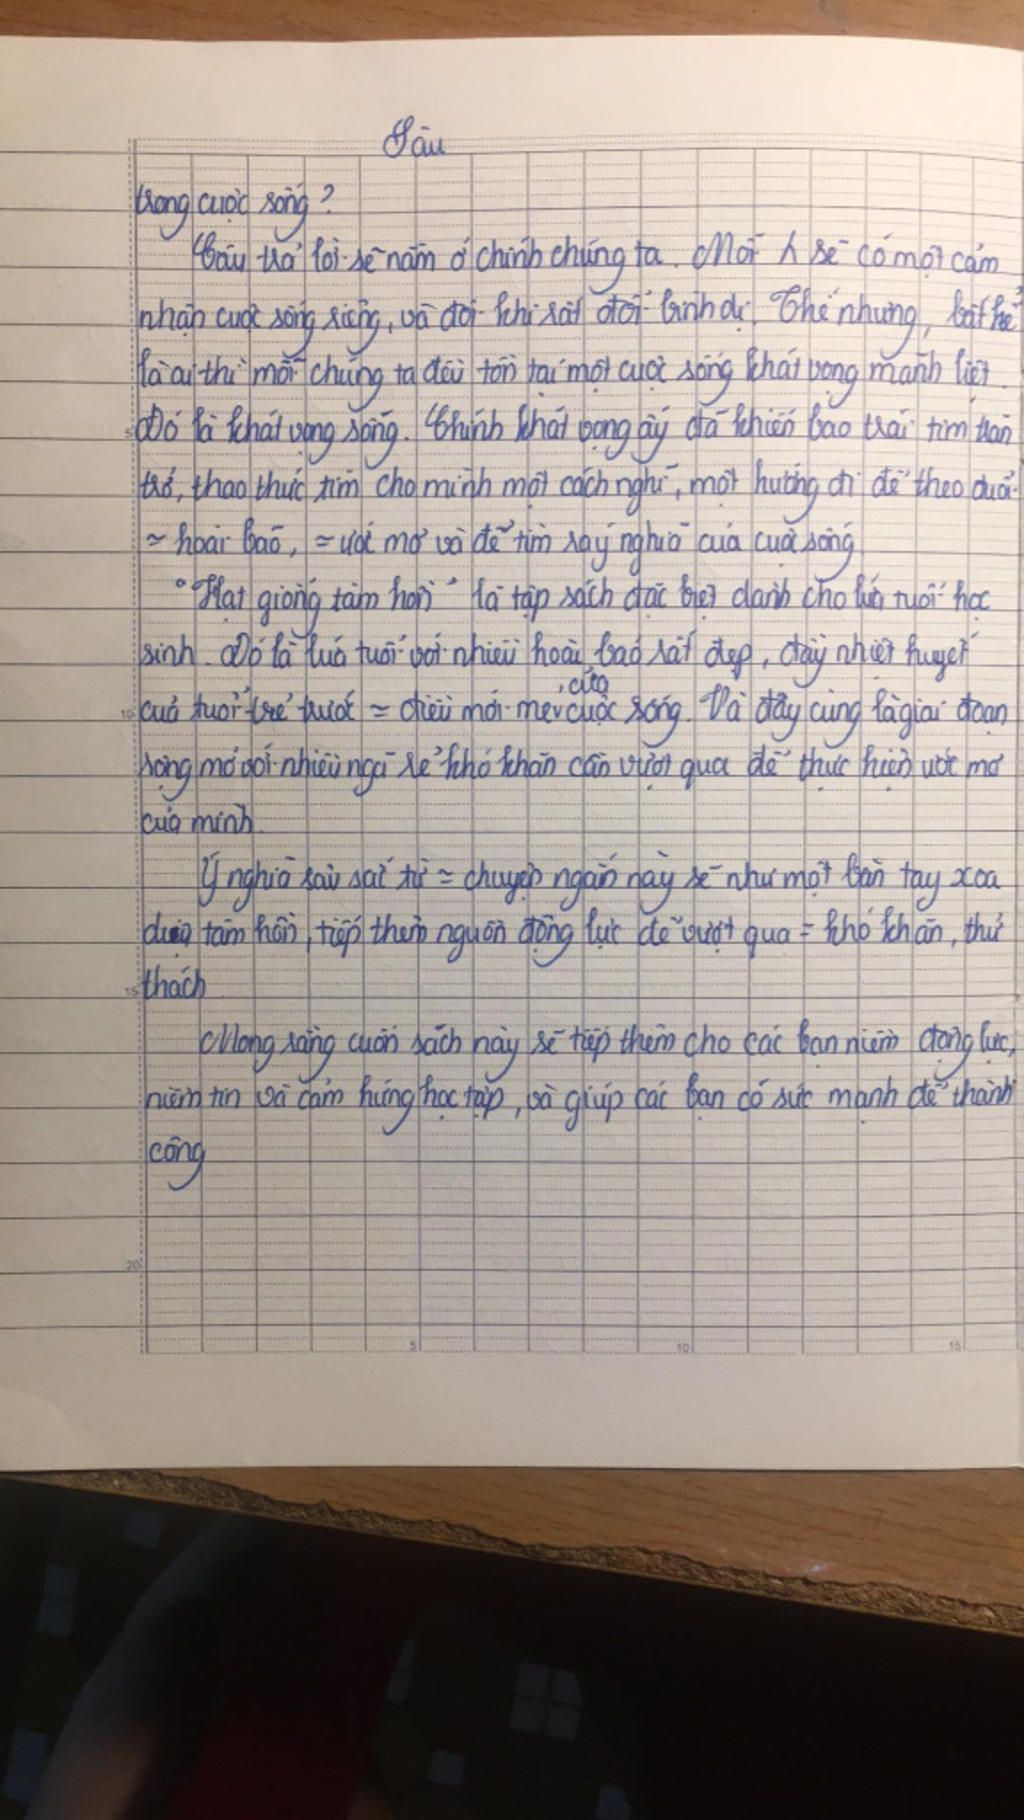 Sáu
trong cuộc sống?
Câu trả lời sẽ nằm ở chính chúng ta. Mỗi λ sẽ có một cảm
nhận cuộc sống riêng, và đôi khi rất đỗi bình dị. Thế nhưng, bất kể
là ai thì mỗi chúng ta đều tồn tại một cuộc sống khát vọng mãnh liệt.
Đó là khát vọng sống. Chính khát vọng ấy đã khiến bao trái tim trăn
trở, thao thức tìm cho mình một cách nghĩ, một hướng đi để theo đuổi
≈ hoài bão, ≈ ước mơ và để tìm ra ý nghĩa của cuộc sống
"Hạt giống tâm hồn" là tập sách đặc biệt dành cho lứa tuổi học
sinh. Đó là lứa tuổi với nhiều hoài bão rất đẹp, đầy nhiệt huyết
của tuổi trẻ trước ≈ điều mới mẻ của cuộc sống. Và đây cũng là giai đoạn
sống mơ với nhiều ngã rẽ khó khăn cần vượt qua để thực hiện ước mơ
của mình
Ý nghĩa sâu sắc từ ≈ chuyện ngắn này sẽ như một bàn tay xoa
dịu tâm hồn, tiếp thêm nguồn động lực để vượt qua = khó khăn, thử
thách
Mong rằng cuốn sách này sẽ tiếp thêm cho các bạn niềm động lực,
niềm tin và cảm hứng học tập, và giúp các bạn có sức mạnh để thành
công
5
10
15
20
5
10
15